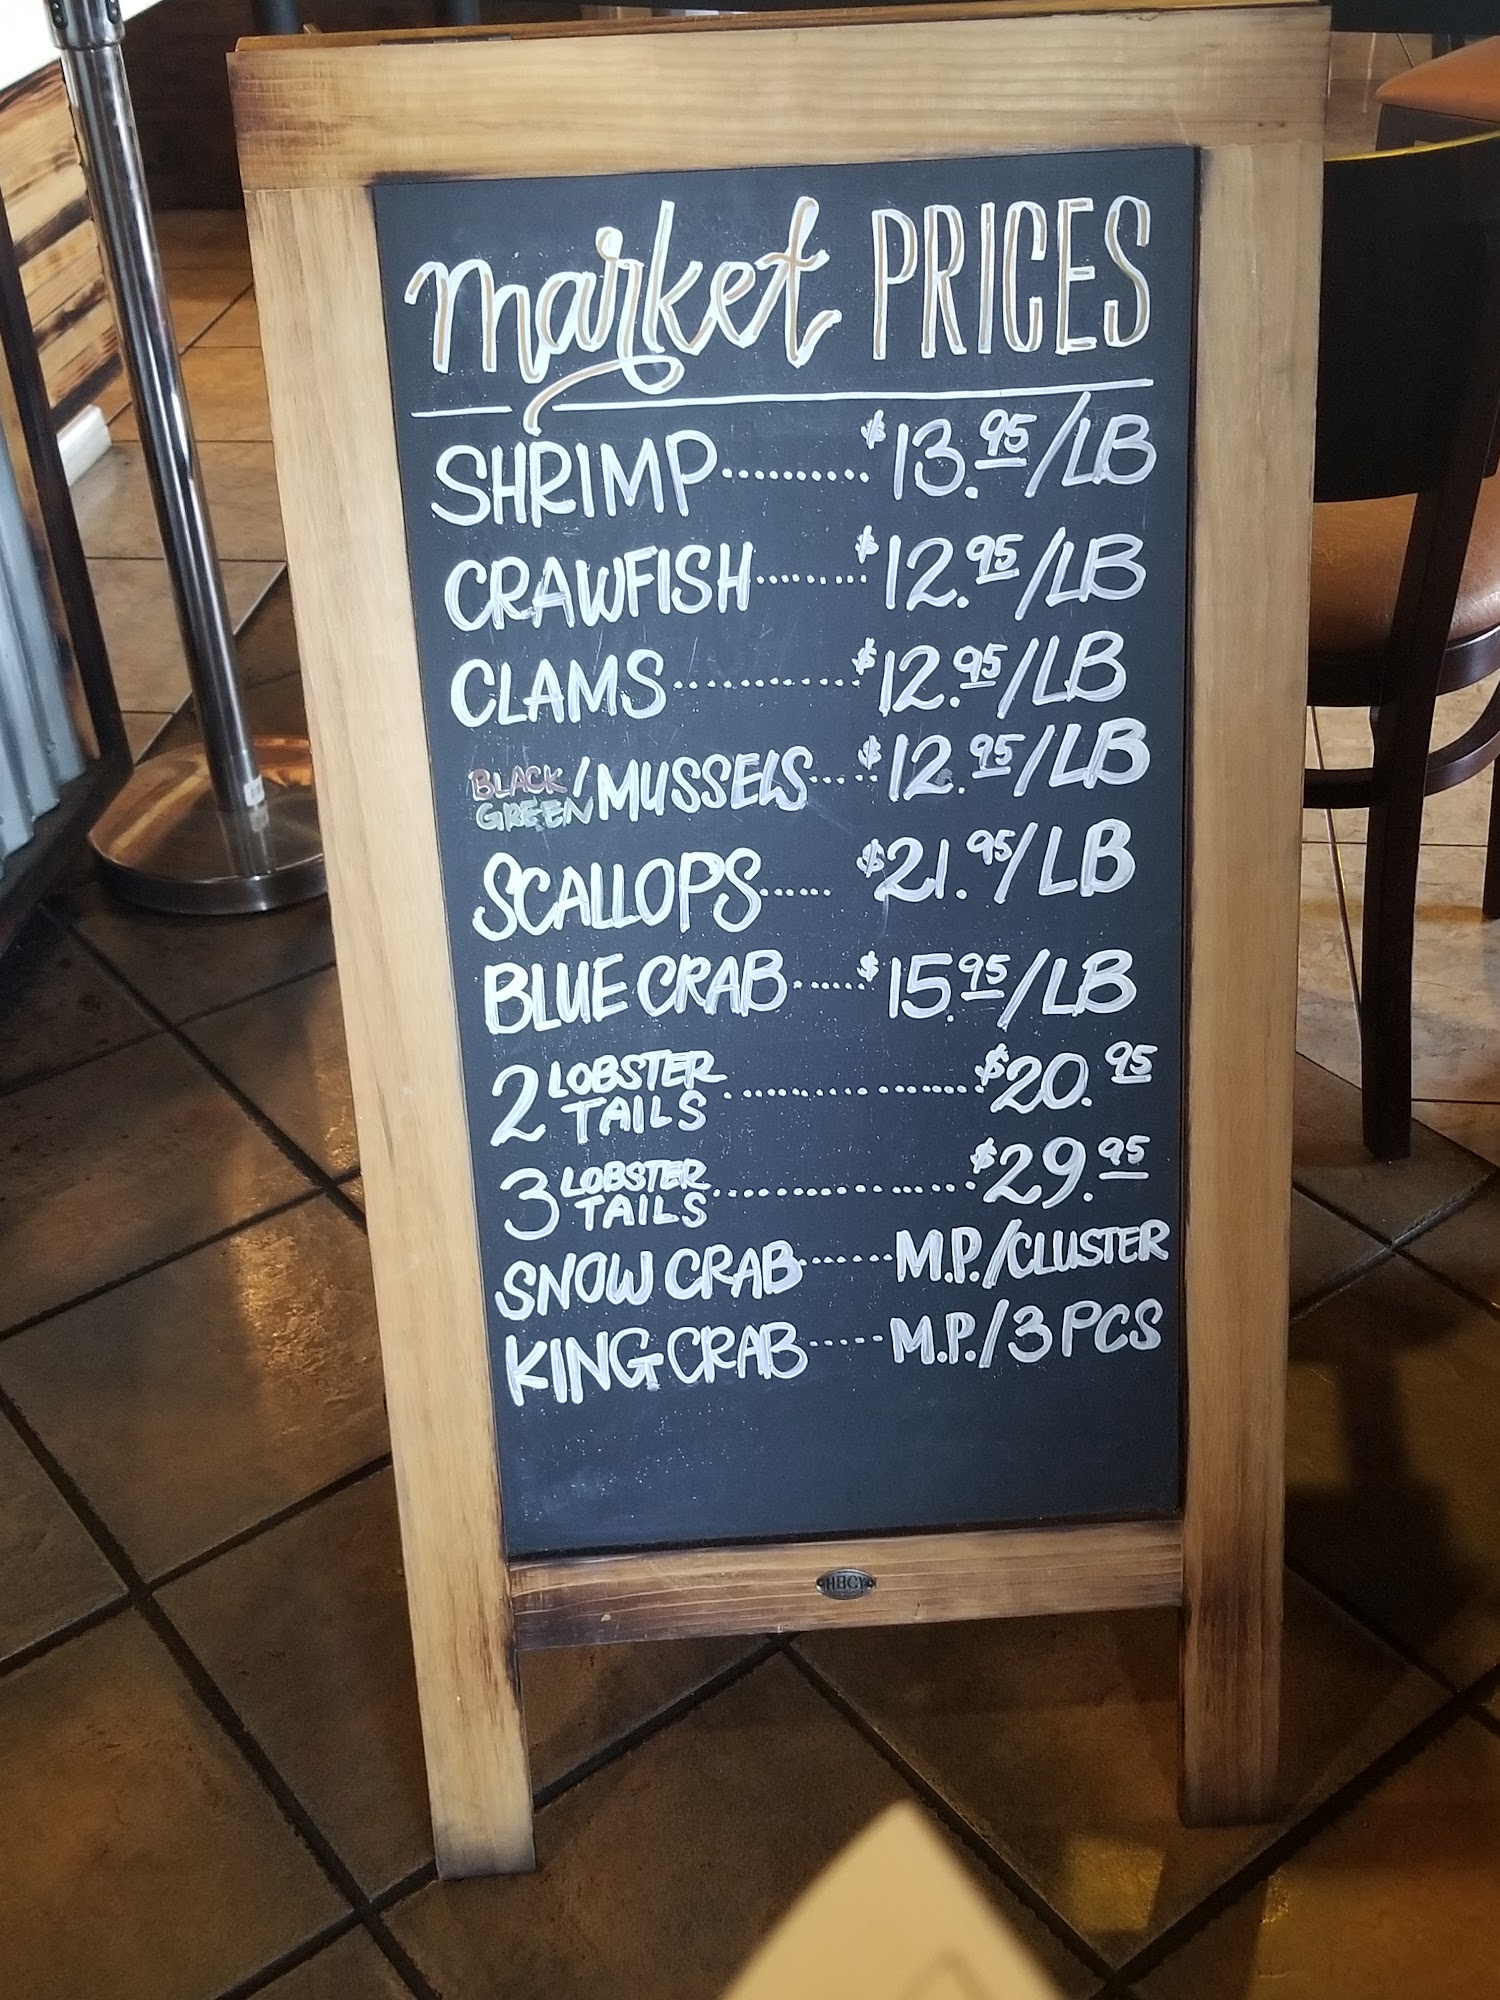 market PRICES
SHRIMP........ $13.95/LB
CRAWFISH....... $12.95/LB
CLAMS............ $12.95/LB
BLACK/GREEN MUSSELS.... $12.95/LB
SCALLOPS...... $21.95/LB
BLUE CRAB...... $15.95/LB
2 LOBSTER TAILS.................. $20.95
3 LOBSTER TAILS.................. $29.95
SNOW CRAB...... M.P./CLUSTER
KING CRAB..... M.P./3 PCS
HBCY